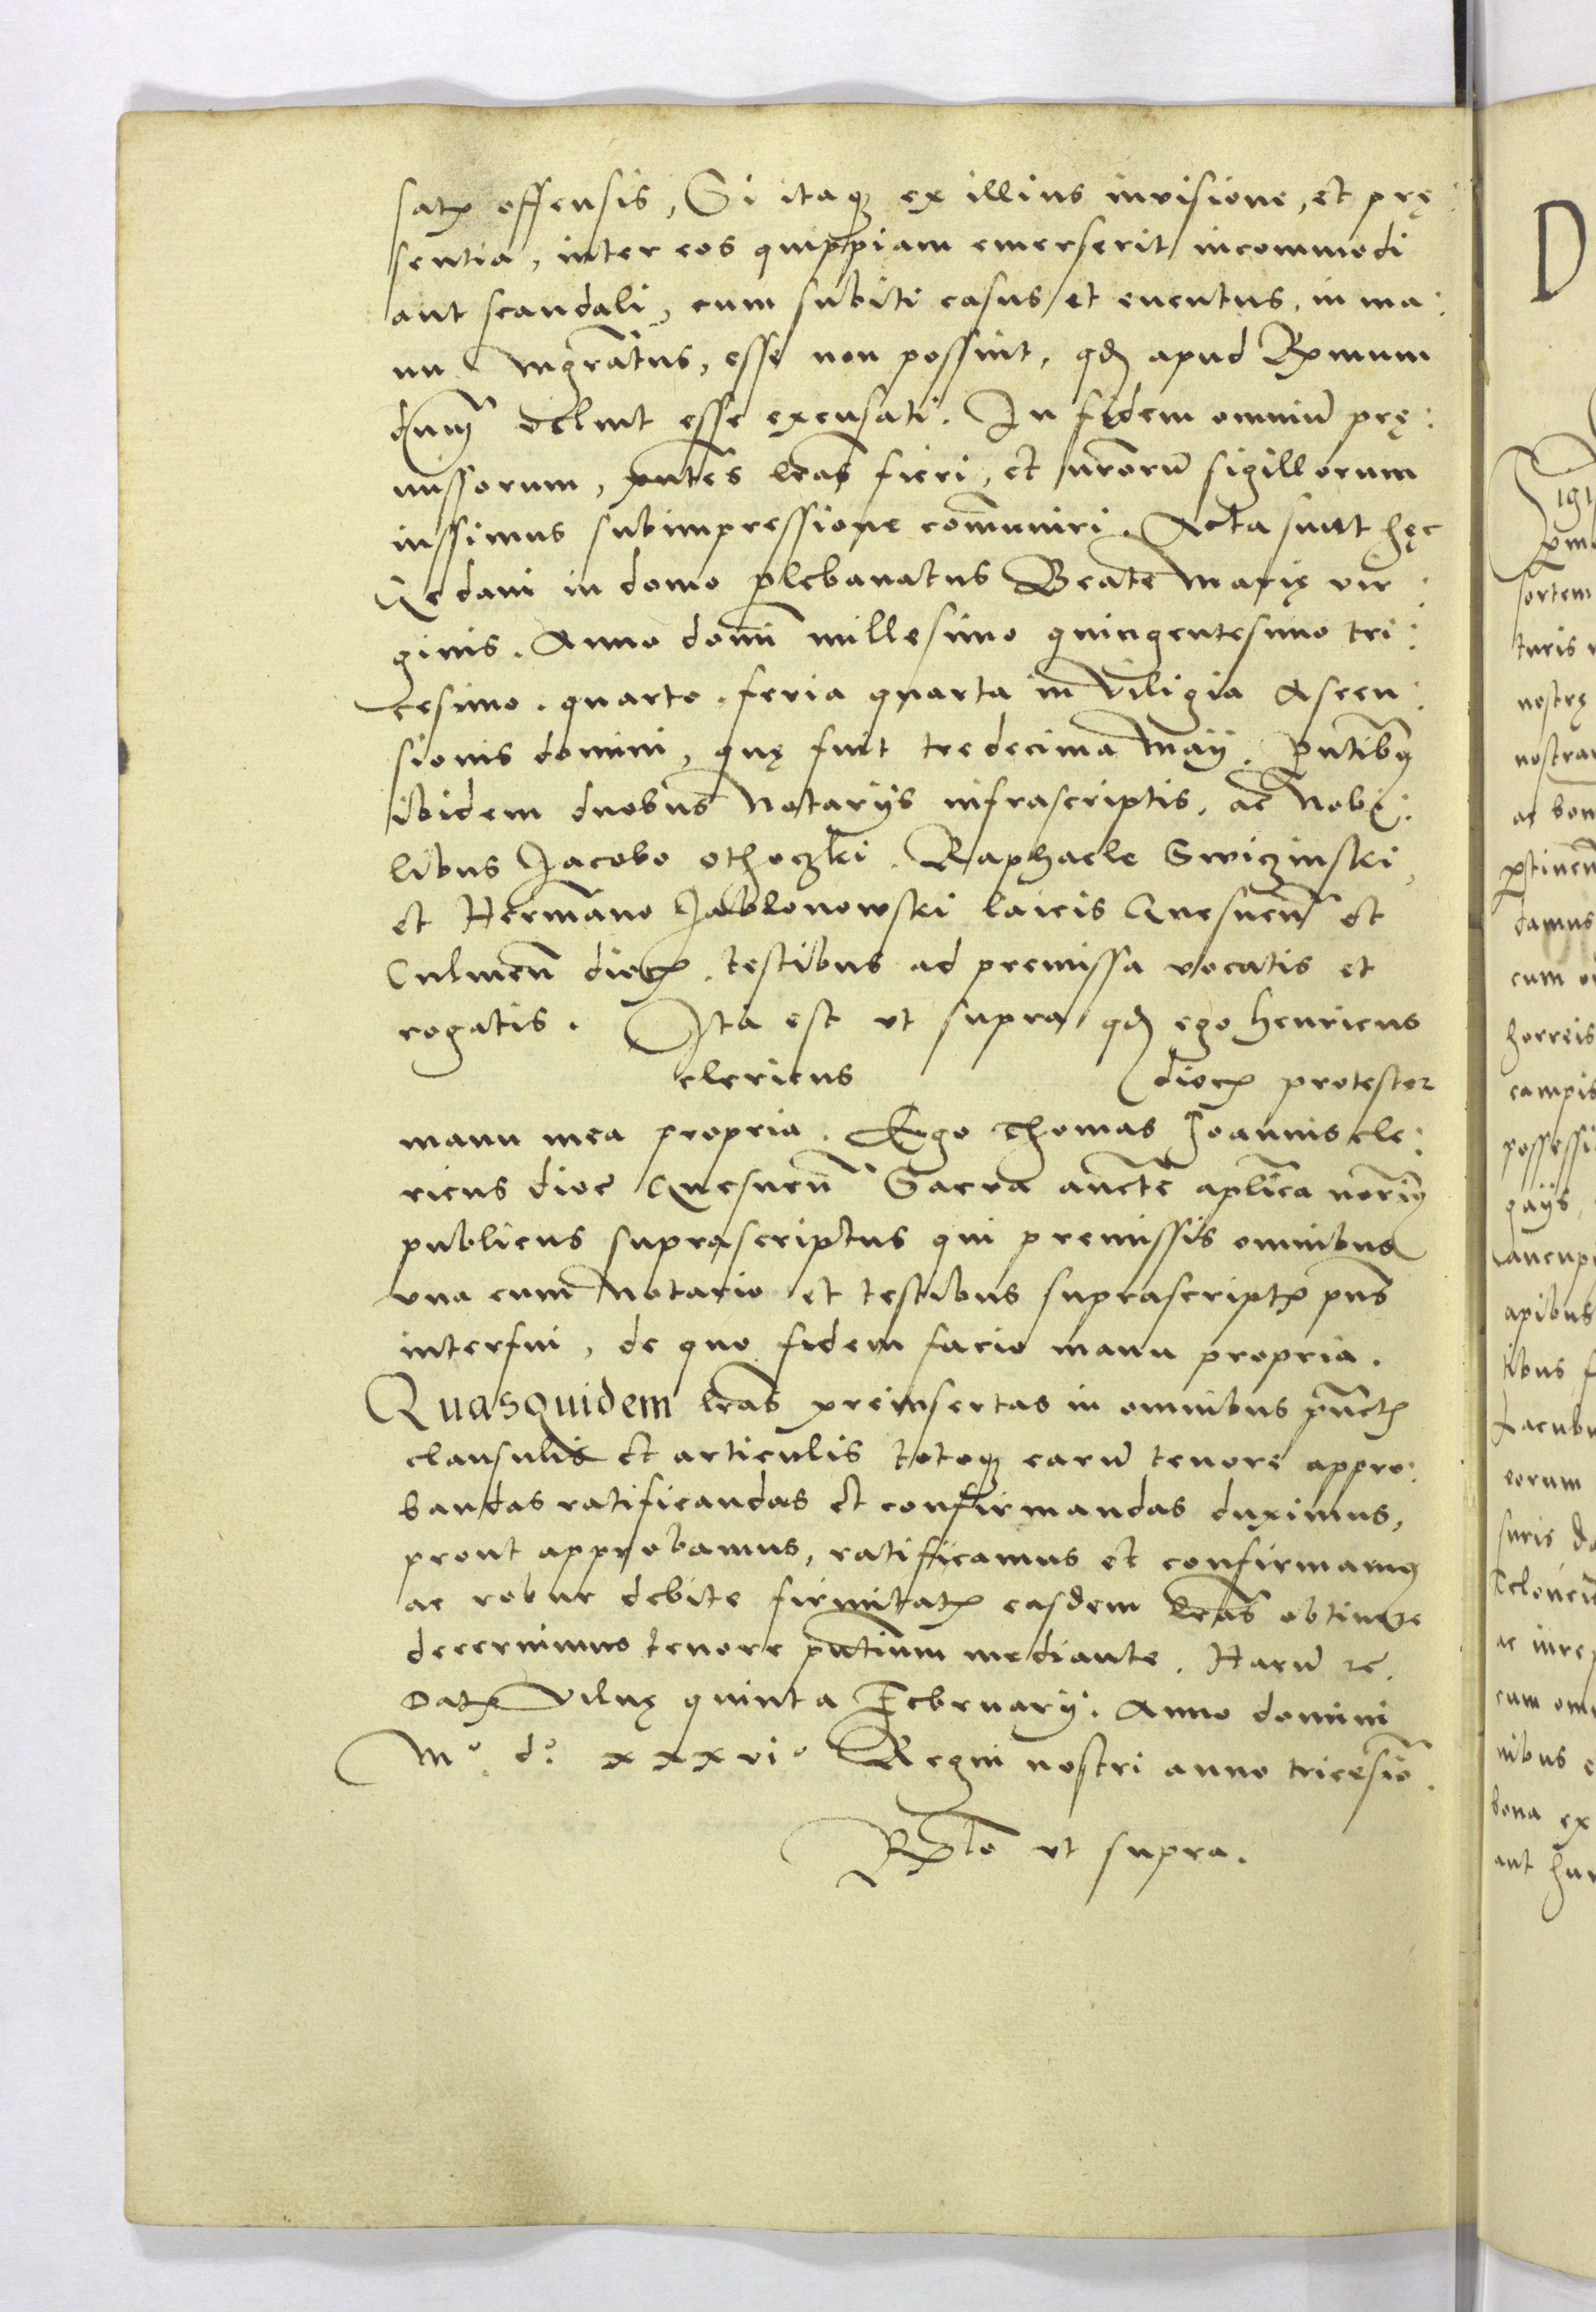 satꝭ offensis, Si itaqꝫ ex illius invisione, et prę:
sentia, inter eos quippiam emerserit incommodi
aut scandali, cum subiti casus et eventus, in ma:
nu Mgratus, esse non possint, qđ apud Rꝑmum
dnum velint esse excusati. In fidem omniū prę:
missorum, pntes lras fieri, et nrorū sigillorum
iussimus subimpressione com̄uniri. Acta sunt hęc
Gedani in domo plebanatus Beate Marię vir:
ginis. Anno domi millesimo quingentesimo tri:
cesimo. quarto. feria quarta in viligia Ascen:
sionis domini, quę fuit tredecima May. Pntibꝫ
ibidem duobus Notarijs infrascriptis, ac Nobi:
libus Jacobo Othoczki. Raphaele Swiczinski,
et Hermano Jablonowski laicis Gnesnen̄ et
Culmen̄ dioeꝭ. testibus ad premissa vocatis et
rogatis. Ita est vt supra qđ ego henricus
clericus dioeꝭ protestor
manu mea propria. Ego Thomas Joannis cle:
ricus dioc̄ Gnesnen̄ Sacra aucte aplica noriꝰ
publicus suprascriptus qui premissis omnibus
vna cum Notario et testibus suprascriptꝭ pns
interfui, de quo fidem facio manu propria.
Quasquidem lras preinsertas in omnibus punctꝭ
clausulis et articulis totoqꝫ earū tenore appro:
bandas ratificandas et confirmandas duximus,
prout approbamus, ratificamus et confirmamꝰ
ac robur debite firmitatꝭ easdem lras obtinere
decernimus tenore pntium mediante. Harū ꝛc̄.
Datꝭ Vilnę quinta February. Anno domini
Mº. dº. xxxviº Regni nostri anno tricesiō.
Rlō vt supra.
D
sortem
turis
nostrę
damus
horreis
campis
gaijs
apibus
eorum
bona ex